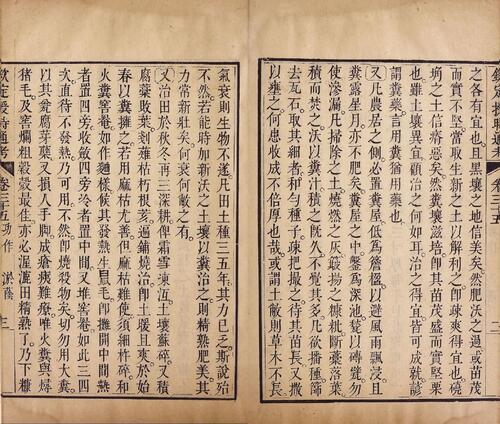 之各有當也且黑壤之地信美矣然肥沃之過或苗茂
而實不堅當取生新之土以解利之即疎爽得宜也磽
埆之土信瘠惡矣然糞壤滋培即其苗茂盛而實堅栗
也雖土壤異宜顧治之何如耳治之得宜皆可成就諺
謂糞藥言用糞猶用藥也
又凡農居之側必置糞屋低為簷楹以避風雨飄浸且
糞露星月亦不肥矣糞屋之中鑿為深池甃以磚甓勿
使滲漏凡掃除之土燒燃之灰簸揚之糠粃斷藁落葉
積而焚之沃以糞汁積之旣久不覺其多凡欲播種篩
去瓦石取其細者和勻種子疎把撮之待其苗長又撒
以壅之何患收成不倍厚也哉或謂土敝則草木不長
氣衰則生物不遂凡田土種三五年其力已乏斯說殆
不然若能時加新沃之土壤以糞治之則精熟肥美其
力常新壯矣何衰何敝之有
又治田於秋冬再三深耕俾霜雪凍沍土壤蘇碎又積
腐藁敗葉剗薙枯朽根荄遍鋪燒治即土暖且爽於始
春以糞擁之若用麻枯尤善但麻枯難使須細杵碎和
火糞窖罨如作麯樣候其發熱生鼠毛即攤開中間熱
者置四旁收斂四旁冷者置中間又堆窖罨如此三四
次直待不發熱乃可用不然即燒殺物矣切勿用大糞
以其瓮腐芽蘖又損人手脚成瘡痍難療唯火糞與燖
猪毛及窖爛粗穀殼最佳亦必渥漉田精熟了乃下糠
欽定授時通考 卷三十五 功作 淤蔭 三